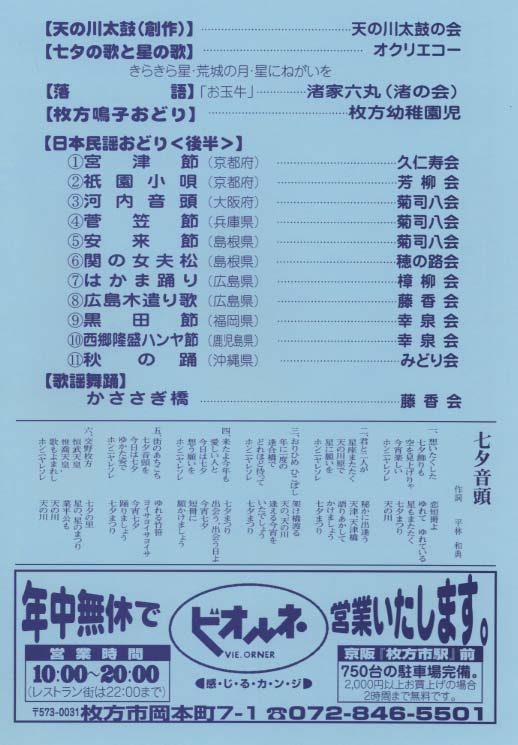 【天の川太鼓(創作)】……………天の川太鼓の会
【七夕の歌と星の歌】……………オクリエコー
きらきら星・荒城の月・星にねがいを
【落語】「お玉牛」…………渚家六丸(渚の会)
【枚方鳴子おどり】……………枚方幼稚園児
【日本民謡おどり<後半>】
①宮津節(京都府)……………久仁寿会
②祇園小唄(京都府)……………芳柳会
③河内音頭(大阪府)……………菊司八会
④菅笠節(兵庫県)……………菊司八会
⑤安来節(島根県)……………菊司八会
⑥関の女夫松(島根県)……………穂の路会
⑦はかま踊り(広島県)……………樟柳会
⑧広島木遣り歌(広島県)……………藤香会
⑨黒田節(福岡県)……………幸泉会
⑩西郷隆盛ハンヤ節(鹿児島県)……………幸泉会
⑪秋の踊(沖縄県)……………みどり会
【歌謡舞踊】
かささぎ橋……………藤香会
七夕音頭
作詞 平林和典
一、想いをたくした
七夕飾りも
空を見上げりゃ
今宵楽しい
ホンニヤレソレ
恋短冊よ
ゆれて ゆれている
星もまたたく
七夕まつり
天の川
二、君と二人が
星座またたく
天の川原で
星に願いを
ホンニヤレソレ
秘かに出逢う
天津、天津橋
語りあかして
かけましょう
七夕まつり
三、おりひめ ひこぼし
年に一度の
逢合橋で
どれほど待って
ホンニヤレソレ
架け橋渡る
天の、天の川
逢える今宵を
いたでしょう
七夕まつり
四、来たよ今年も
愛しい人と
今日は七夕
想う願いを
ホンニヤレソレ
七夕まつり
出会う、出会う日よ
今宵七夕
短冊に
願かけましょう
五、街のあちこち
七夕音頭を
今日は七夕
ゆかた姿で
ホンニヤレソレ
ゆれる竹笹
ヨイサヨイサヨイサ
今宵七夕
踊りましょう
七夕まつり
六、交野枚方
恒武天皇
惟喬天皇
歌もよまれし
ホンニヤレソレ
七夕の里
星の、星のまつり
業平公も
天の川
天の川
年中無休で
ビオルネ
VIE. ORNER
営業いたします。
営業時間
10:00〜20:00
(レストラン街は22:00まで)
●感・じ・る・カ・ン・ジ●
京阪『枚方市駅』前
750台の駐車場完備。
2,000円以上お買上げの場合
2時間まで無料です。
〒573-0031 枚方市岡本町7-1 ☎072-846-5501